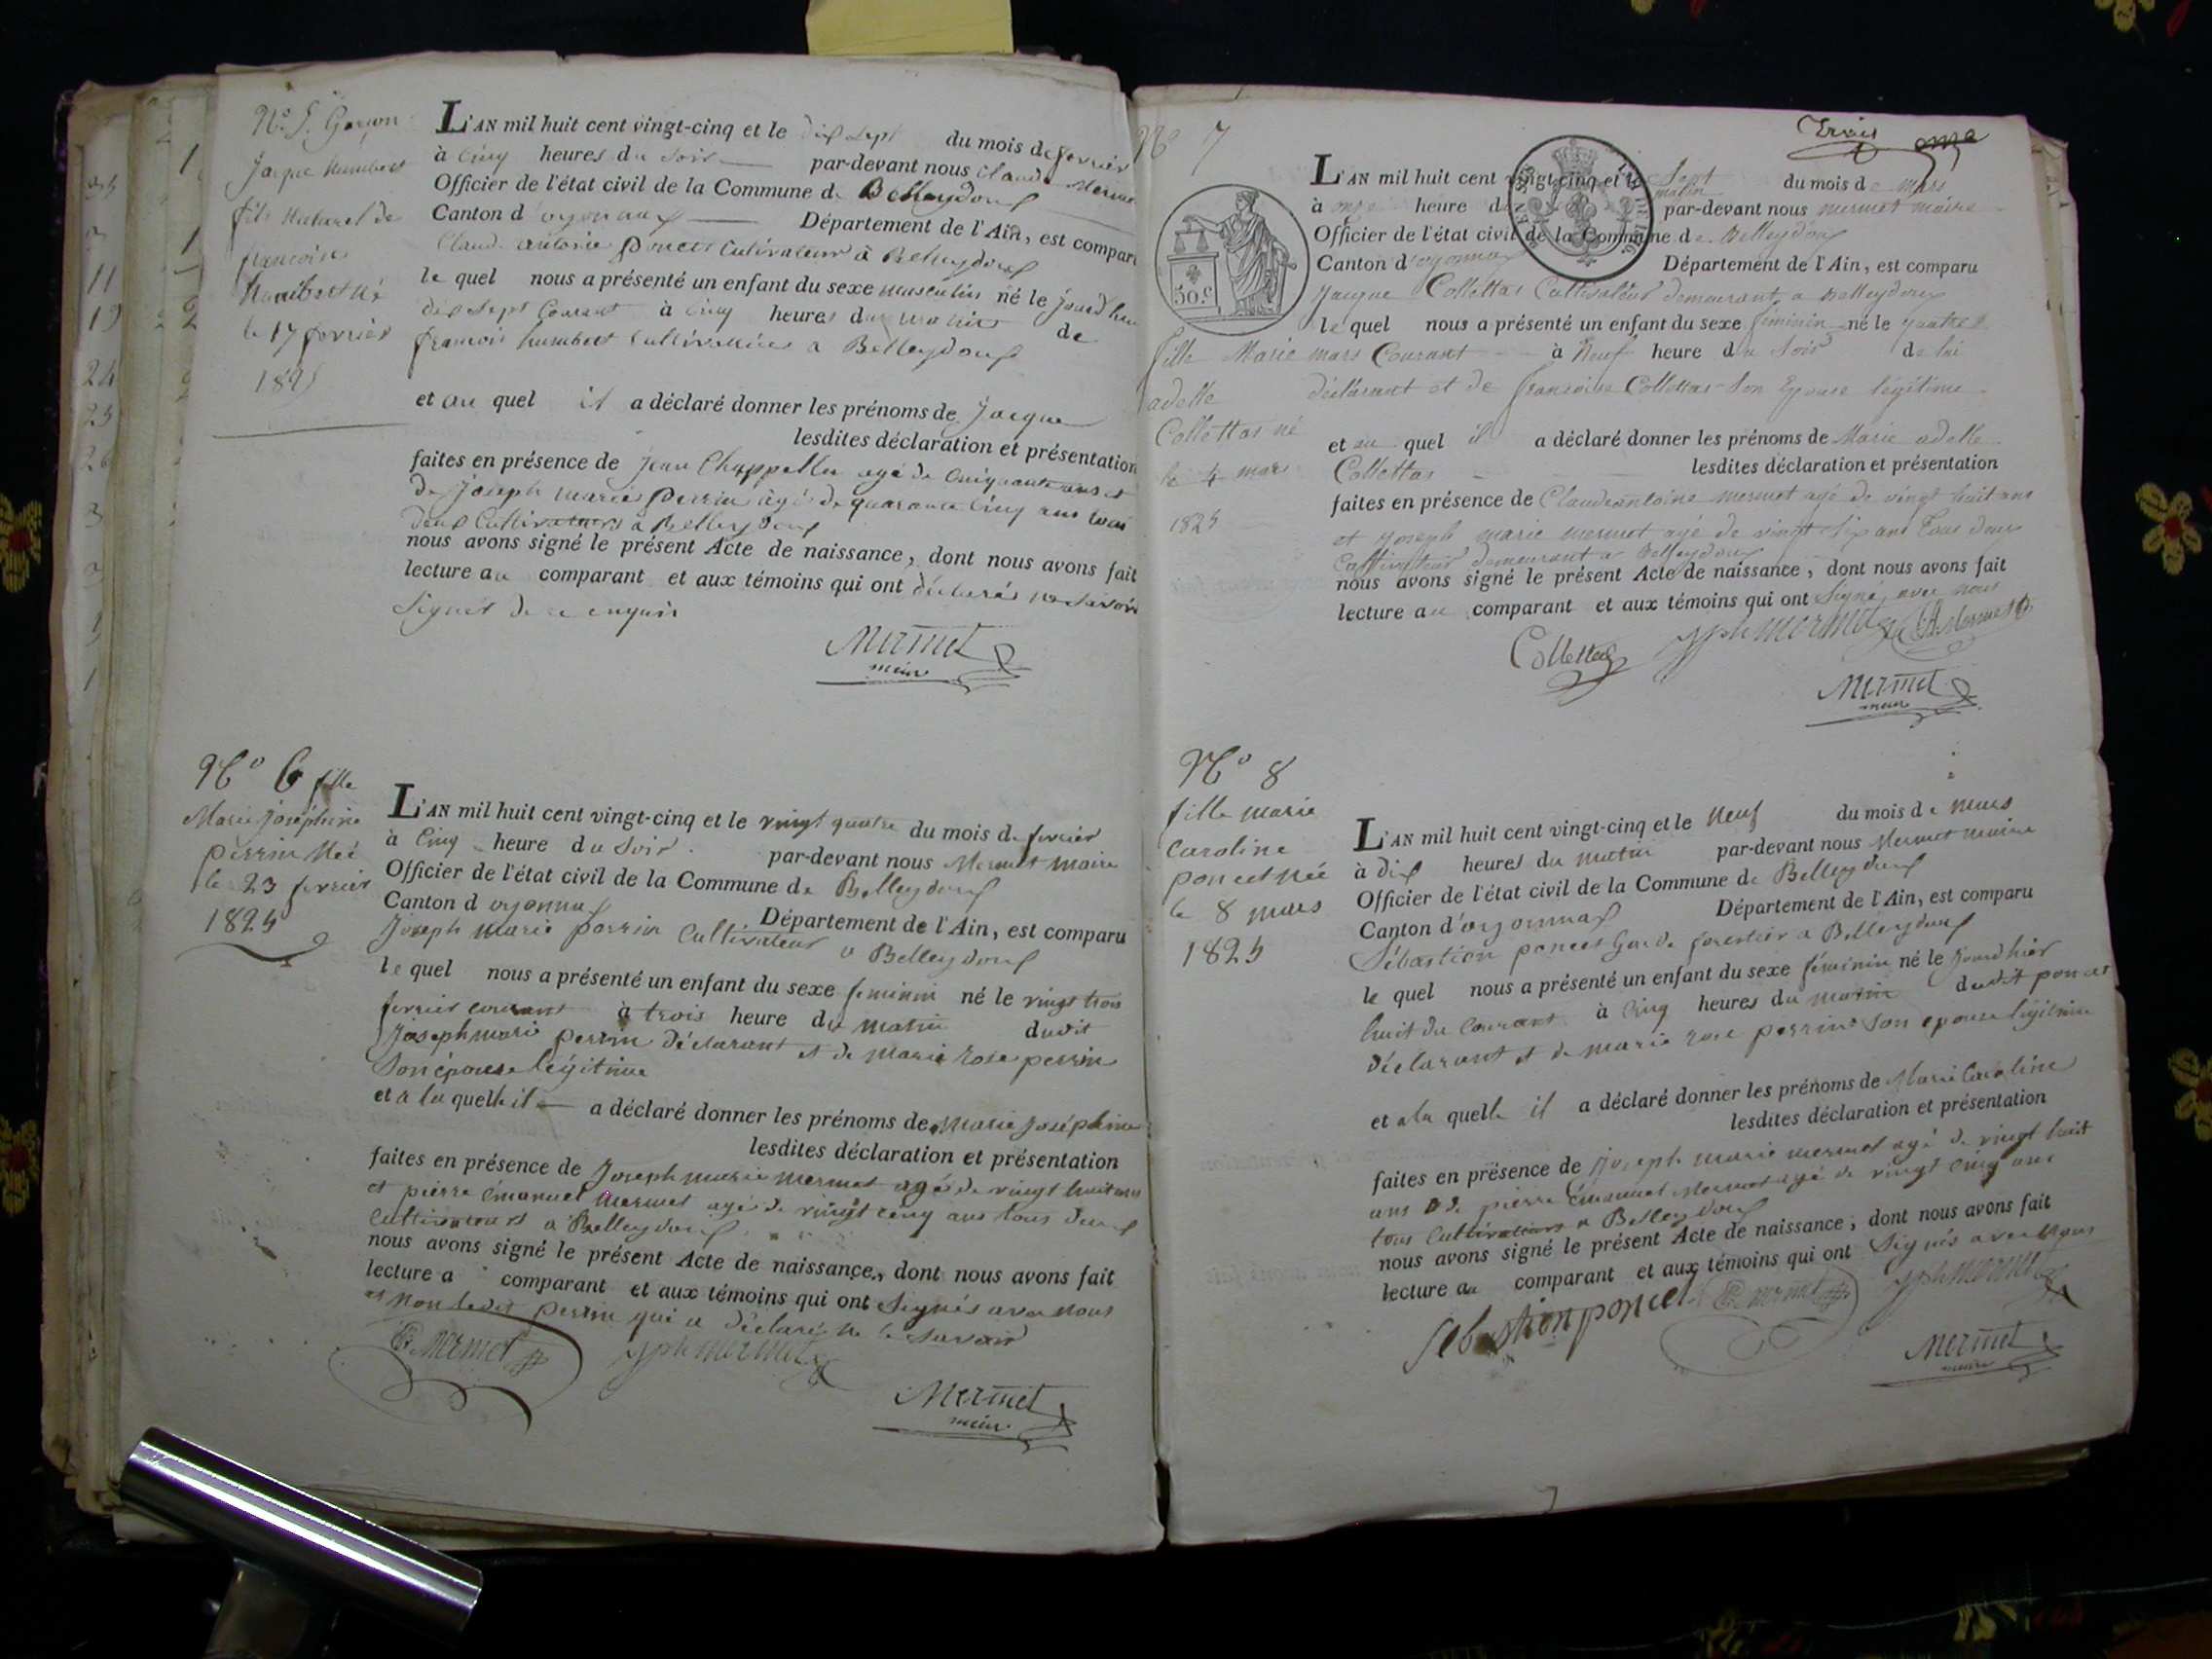 N.º 5. Garçon
Jacque humbert
fils Naturel de
françoise
humbert né
le 17 fevrier
1825
L'AN mil huit cent vingt-cinq et le dix sept du mois de fevrier
à Cinq heures du soir par-devant nous Claude Mermet
Officier de l'état civil de la Commune de Belleydoux
Canton d'oyonnax Département de l'Ain, est comparu
Claude antoine poncet Cultivateur à Belleydoux
le quel nous a présenté un enfant du sexe masculin né le jourd'hui
dix sept Courant à Cinq heures du matin de
françoise humbert Cultivatrice a Belleydoux
et au quel il a déclaré donner les prénoms de Jacque
lesdites déclaration et présentation
faites en présence de Jean Chappellu agé de Cinquante ans et
de Joseph marie perrin agé de quarante Cinq ans tous
deux Cultivateurs a Belleydoux
nous avons signé le présent Acte de naissance, dont nous avons fait
lecture au comparant et aux témoins qui ont déclarés ne savoir
Signer de ce enquis
Mermet
maire
Nº 6 fille
Marie Joséphine
perrin Née
le 23 fevrier
1825
L'AN mil huit cent vingt-cinq et le vingt quatre du mois de fevrier
à Cinq heure du Soir par-devant nous Mermet maire
Officier de l'état civil de la Commune de Belleydoux
Canton d oyonnax Département de l'Ain, est comparu
Joseph marie perrin Cultivateur a Belleydoux
le quel nous a présenté un enfant du sexe feminin né le vingt trois
fevrier courant à trois heure du matin dudit
Joseph marie perrin Déclarant et de Marie Rose perrin
Son épouse légitime
et a la quelle il a déclaré donner les prénoms de Marie Joséphine
lesdites déclaration et présentation
faites en présence de Joseph marie mermet agé de vingt huit ans
et pierre émanuel Mermet agé de vingt cinq ans tous deux
Cultivateurs a Belleydoux
nous avons signé le présent Acte de naissance, dont nous avons fait
lecture a comparant et aux témoins qui ont Signés avec nous
et non ledit perrin qui a Déclaré ne le savoir
E Mermet Jph Mermet
Mermet
maire
Trois onze
Nº 7
50.c
fille Marie
adelle
Collettas né
le 4 mars
1825
L'AN mil huit cent vingt-cinq et le Sept du mois de mars
à onze heure du matin par-devant nous mermet maire
Officier de l'état civil de la Commune de Belleydoux
Canton d'oyonnax Département de l'Ain, est comparu
Jacque Collettas Cultivateur demeurant a Belleydoux
le quel nous a présenté un enfant du sexe féminin né le quatre
mars Courant à Neuf heure du Soir de lui
déclarant et de françoise Collettas Son Epouse légitime
et au quel il a déclaré donner les prénoms de Marie adelle
Collettas lesdites déclaration et présentation
faites en présence de Claudeantoine mermet agé de vingt huit ans
et Joseph marie mermet agé de vingt Six ans Tous deux
Cultivateur demeurant a Belleydoux
nous avons signé le présent Acte de naissance, dont nous avons fait
lecture au comparant et aux témoins qui ont Signé avec nous
Collettas Jph Mermet A Mermet
Mermet
maire
Nº 8
fille marie
Caroline
poncet Née
le 8 mars
1825
L'AN mil huit cent vingt-cinq et le Neuf du mois de mars
à dix heures du matin par-devant nous Mermet maire
Officier de l'état civil de la Commune de Belleydoux
Canton d'oyonnax Département de l'Ain, est comparu
Sébastien poncet Garde forestier a Belleydoux
le quel nous a présenté un enfant du sexe féminin né le jourd hier
huit du Courant à Cinq heures du matin dudit poncet
Déclarant et de marie rose perrin Son epouse légitime
et a la quelle il a déclaré donner les prénoms de Marie Caroline
lesdites déclaration et présentation
faites en présence de Joseph marie mermet agé de vingt huit
ans & de pierre émanuel Mermet agé de vingt cinq ans
tous Cultivateurs a Belleydoux
nous avons signé le présent Acte de naissance, dont nous avons fait
lecture au comparant et aux témoins qui ont Signés avec Nous
Sebastien poncet E Mermet Jph Mermet
Mermet
maire